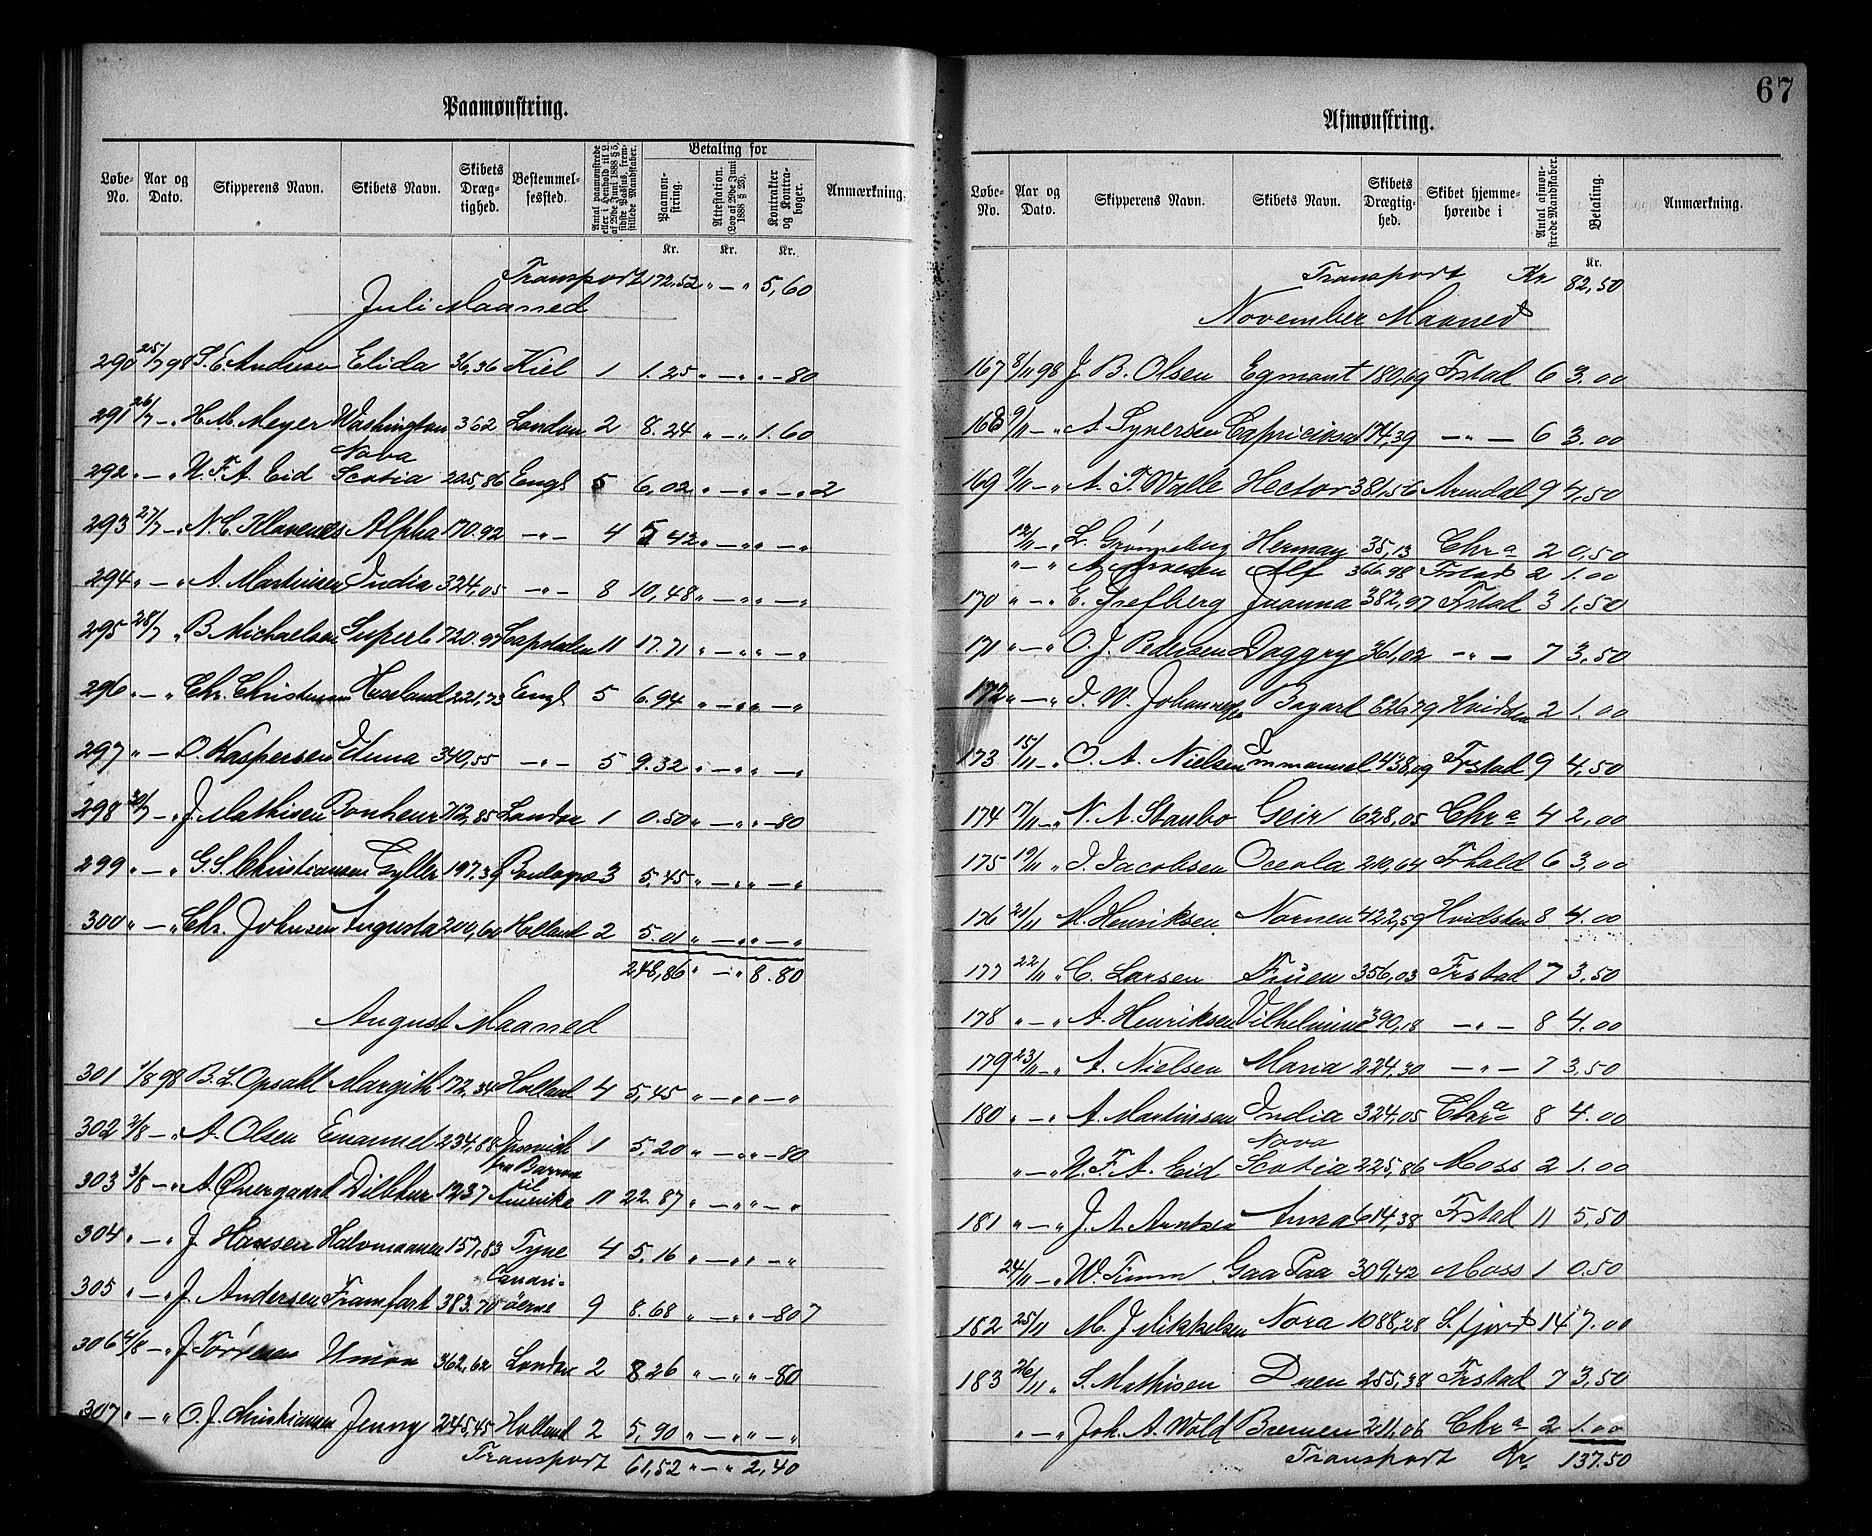 Paamønstring.
Løbe-No. Aar og Dato. Skipperens Navn. Skibets Navn. Skibets Dræg-tighed. Bestemmel-sessted. Antal paamønstrede eller i Henhold til L. af 29de Juni 1888 § 5, sidste Passus, frem-stillede Mandskaber. Betaling for Paamøn-string. Attestation. (Lov af 29de Juni 1888 § 23). Kontrakter og Kontra-bøger. Anmærkning.
Kr. Kr. Kr.
Transport 172,52 " — " 5,60
Juli Maaned
290 25/7 98 S. E. Andersen Elida 36,36 Kiel 1 1.25 " — " " — 80
291 26/7 — " H. M. Meyer Washington 362 London 2 8.24 " — " 1.60
292 " — " N. F. A. Eid Nova Scotia 225,86 Engl 5 6,02 " — " " — " 2
293 27/7 — " N. C. Klavenes Alpha 170.92 — " — 4 5 42 " — " " — "
294 " — " A. Martinsen India 324,05 — " — 8 10,48 " — " " — "
295 28/7 " B. Michaelsen Superb 720.97 Capstaden 11 17.71 " — " " — "
296 " — " Chr. Christensen Heseland 221,73 Engl 5 6.94 " — " " — "
297 " — O. Kaspersen Iduna 340,55 — " — 5 9.32 " — " " — "
298 30/7 — " J. Mathisen Bonheur 712,85 London 1 0.50 " — " " — 80
299 " — " G. S. Christiansen Gyller 197.38 3 5,45 " — " " — "
300 " — " Chr. Johnsen Augusta 200,60 Holland 2 5.01 " — " " — "
248,86 " — " 8.80
August Maaned
301 1/8 98 B. L. Opsahl Margith 172,34 Holland 4 5,45 " — " " — "
302 2/8 — " A. Olsen Emanuel 234,88 Ipsovich 1 5,20 " — " " — 80
303 3/8 — " A. Øvergaard Dilkhur 1237 fra Barrow til Amerika 11 22.87 " — " " — "
304 " — " J. Hansen Halvmaanen 157,83 Tyne 4 5,16 " — " " — "
305 " — " J. Andersen Framfart 383.70 Canari-øerne 9 8.68 " — " " — 80 7
306 4/8 — " J. Union 362,62 London 2 8.26 " — " " — 80
307 " — " O. J. Christiansen Jenny 245,45 Holland 2 5,90 " — " " — "
Transport 61,52 " — " 2,40
67
Afmønstring.
Løbe-No. Aar og Dato. Skipperens Navn. Skibets Navn. Skibets Drægtig-hed. Skibet hjemme-hørende i Antal afmøn-strede Mandskaber. Betaling. Anmærkning.
Kr.
Transport Kr 82,50
November Maaned
167 8/11 98 J. B. Olsen Egmont 180,69 Frstad 6 3.00
168 9/11 — " A. Synersen Capriciosa 174,39 — " — 6 3.00
169 9/11 — " A. T. Walle Hector 381,56 Arendal 9 4,50
12/11 — " L. Grønneberg Hermay 35,13 Chr a 2 0,50
" — " A. Alf 366.98 Frstad 2 1.00
170 " — " E. Grefberg Juanna 382,97 Fstad 3 1,50
171 " — " O. J. Pedersen Daggry 361,02 — " — 7 3,50
172 " — " I. W. Johannessen Bayard 626,79 Hvidsten 2 1.00
173 15/11 — " O. A. Nielsen Immanuel 438,09 Frstad 9 4,50
174 17/11 — " N. A. Staubo Geir 628,05 Chr a 4 2,00
175 19/11 " I. Jacobsen Oceola 210,64 Frhald 6 3,00
176 21/11 " M. Henriksen Nornen 422,59 Hvidsten 8 4.00
177 22/11 " C. Larsen Fruen 356,03 Frstad 7 3,50
178 " — " A. Henriksen Vilhelmine 390,18 — " — 8 4.00
179 23/11 — " A. Nielsen Maria 224,30 — " — 7 3,50
180 " — " A. Martinsen India 324,05 Chr a 8 4.00
" — " N. F. A. Eid Nova Scotia 225,86 Moss 2 1.00
181 " — " J. A. Arntsen Anna 614,38 Frstad 11 5,50
24/11 — " W. Timm Gaa Paa 309,42 Moss 1 0.50
182 25/11 M. J. Mikkelsen Nora 1088,28 S. fjord 14 7.00
183 26/11 " S. Mathisen Duen 255,38 Frstad 7 3,50
" — " Joh. A. Wold Bremen 211,06 Chr a 2 1.00
Transport Kr. 137.50